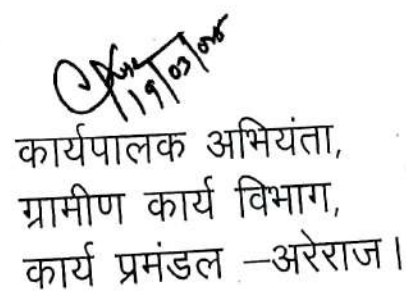 19/03/
कार्यपालक अभियंता,
ग्रामीण कार्य विभाग,
कार्य प्रमंडल –अरेराज।